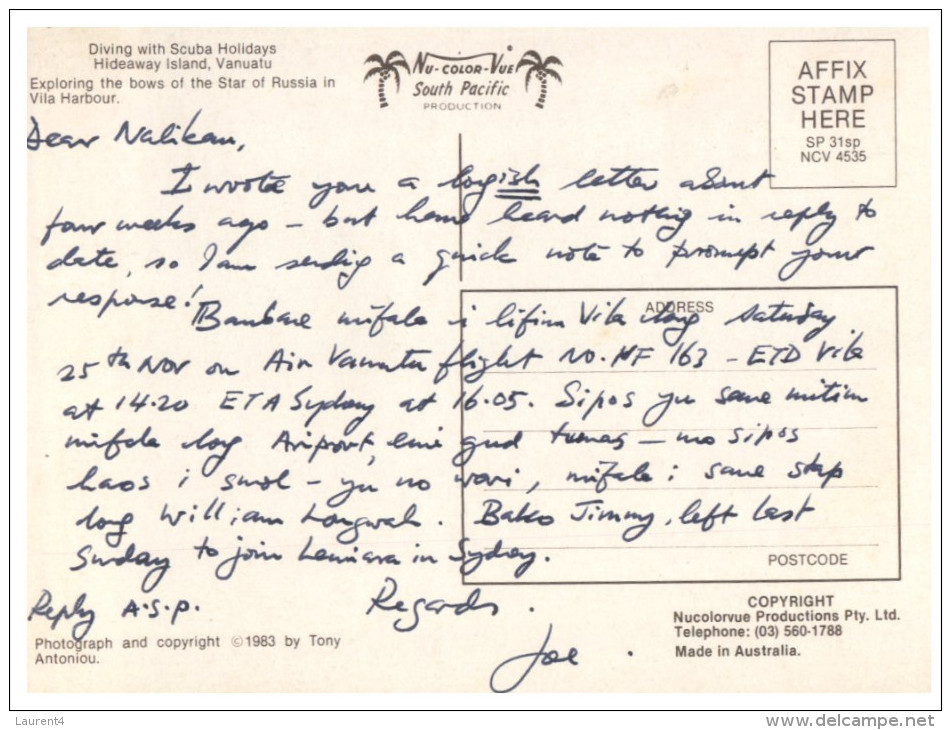 Diving with Scuba Holidays
Hideaway Island, Vanuatu
Exploring the bows of the Star of Russia in
Vila Harbour.
NU-COLOR-VUE®
South Pacific
PRODUCTION
AFFIX
STAMP
HERE
SP 31sp
NCV 4535
Dear Nalikau,
I wrote you a longish letter about
four weeks ago - but have heard nothing in reply to
date, so I am sending a quick note to prompt your
response!
ADDRESS
mifala i lifim Vila long Saturday
25th Nov on Air Vanuatu flight NO. NF 163 - ETD Vila
at 14.20 ETA Sydney at 16.05. Sipos yu save mitim
mifala long Airport, emi gud tumas - mo sipos
haos i smol - yu no wori, mifala i save stap
long William Longwah. Bako Jimmy, left last
Sunday to join in Sydney.
POSTCODE
Reply A.S.P. Regards.
Joe.
Photograph and copyright ©1983 by Tony
Antoniou.
COPYRIGHT
Nucolorvue Productions Pty. Ltd.
Telephone: (03) 560-1788
Made in Australia.
Laurent4
www.delcampe.net